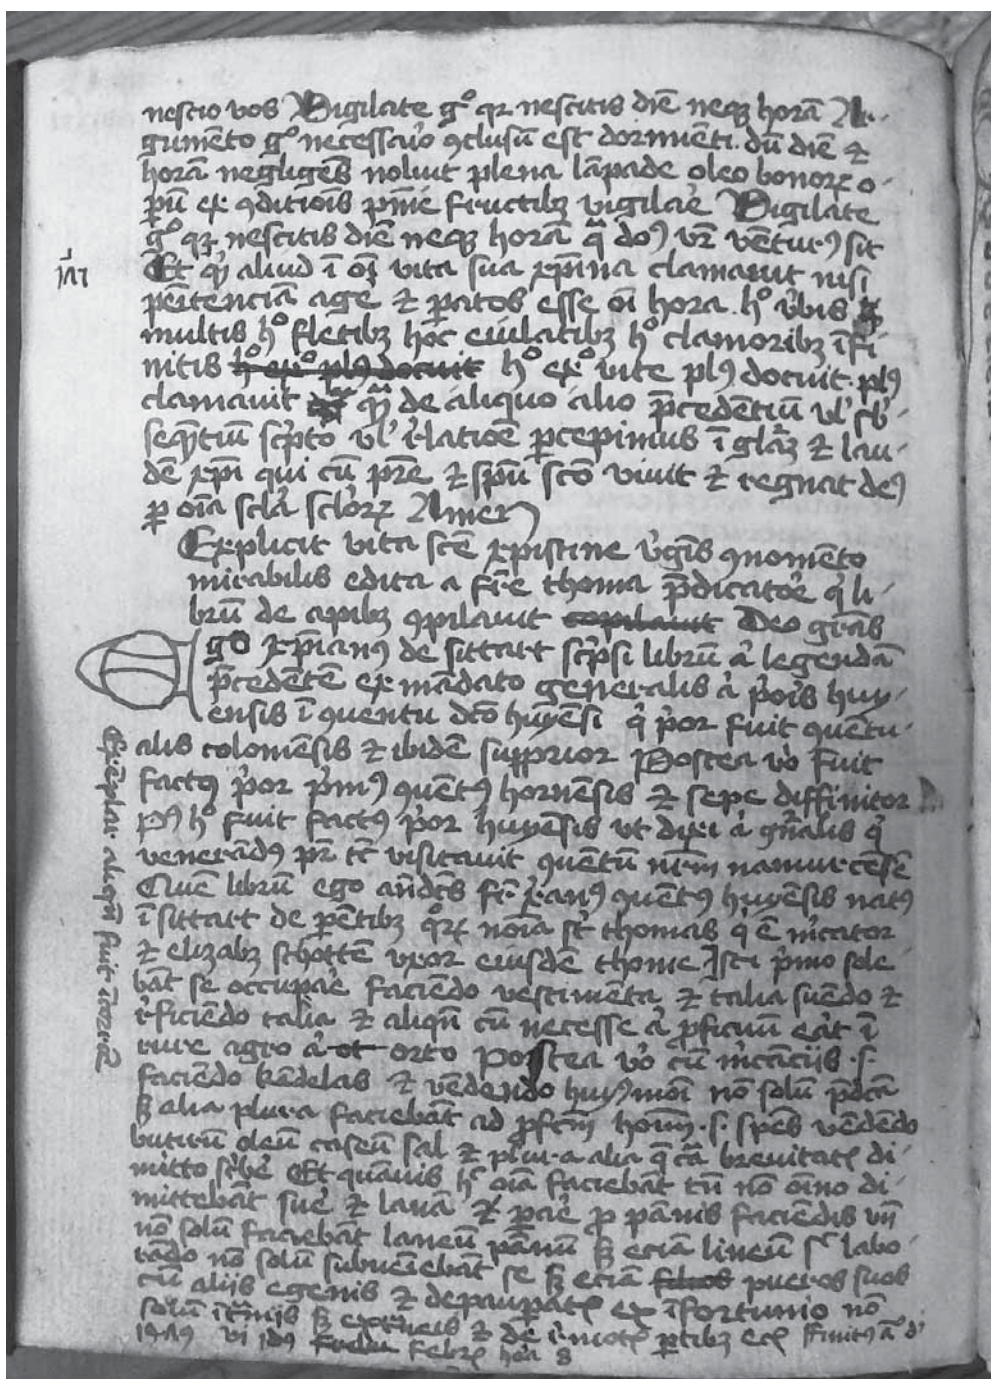 nescio vos Vigilate gͦ qꝛ nescitis diē neqꝫ horā Ar-
gumēto gͦ necessaͥo ꝯclusū est dormiēti. dū diē ⁊
horā negligēs noluit plena lāpade oleo bonoꝝ o-
ꝑū ex ꝯditiōis pͥme fructibꝫ vigilaͤ Vigilate
gͦ qꝛ nescitis diē neqꝫ horā qͣ doꝰ vr̄ ventuꝛꝰ sit
Et qͥ aliud ī oī vita sua xp̄ina clamauit nisi
pēitenciā ageͤ ⁊ ꝑatos esse oī hora. hͦ v̄bis
multis hͦ fletibꝫ hoc eiulatibꝫ hͦ clamoribꝫ īfi-
nitis hͦ exͦ plꝰ docuit hͦ exͦ vite plꝰ docuit. plꝰ
clamauit qͣ de aliquo alio p̄cedentium vl' sb'-
seqͣtium sc̄pto vl' r̄latiōe ꝑcepimus ī glāꝫ ⁊ lau-
dē xp̄i qui cū pr̄e ⁊ sp̄u sc̄o viuit ⁊ regnat deꝰ
ꝑ oīa scl̄a scl̄oꝝ Amen
Explicit vita sc̄e xpistine v̄gīs ꝯnomēto
mirabilis edita a fr̄e thoma p̄dicatoͤ qͥ li-
brū de apibꝫ ꝯpilauit copilauit Deo gr̄as
go xp̄ianꝰ de sittart sc̄psi librū ā legendā
p̄cedētē ex mādato generalis ā pͥois huy-
ensis ī ꝯuentu dc̄o huyēsi qͥ pͥor fuit ꝯuētu-
alis coloniēsis ⁊ ibidē supprior Postea vͦo fuit
factꝰ pͥor pͥmꝰ ꝯuētꝰ hornēsis ⁊ sepe diffinitor
pꝰ hͦ fuit factꝰ pͥor huyēsis vt dixi ā gn̄alis qͥ
venerādꝰ pr̄ tc̄ visitauit ꝯuētū nr̄m namurcēsē
Quē librū ego an̄dc̄s fr̄ xp̄ianꝰ ꝯuētꝰ huyēsis natꝰ
ī sittart de pētibꝫ qͦꝝ noīa st̄ thomas qͥ ē mͤcator
⁊ elizabꝫ schottē vxor eiusdē thome Isti pͥmo sole
bāt se occupaͤ faciēdo vestimēta ⁊ talia suēdo ⁊
rͤficiēdo talia ⁊ aliqn̄ cū necesse ā ꝓficuū eāt ī
rure agro ā et orto Postea vͦo cū mͤcāciis .s.
faciēdo kādelas ⁊ vēdendo huyꝰmōi nō solū p̄dc̄a
sꝫ alia plura faciebāt ad ꝓfcm̄ hoīm .s. spēs vēdēdo
butirū oleū caseū sal ⁊ plura alia q̄ cā breuitatꝭ di-
mitto sͨbeͤ Et quāuis hͨ oīa faciebāt tn̄ nō oīno di-
mittebāt sueͤ ⁊ lanā ⁊ ꝑaͤ ꝓ pānis faciēdis vn̄
nō solū faciebāt laneū pānū sꝫ eciā lineū sͨ labo-
rādo nō solū subueīebāt se sꝫ eciā filios pueros suos
cū aliis egenis ⁊ depauꝑatꝭ ex īfortunio nō
solū īt̄nis sꝫ ext̄neis ⁊ de rͤmotꝭ ꝑtibꝫ ecꝭ ffinitꝰ aͦ dͥ
vi idꝰ febrꝭ hoͣ 8